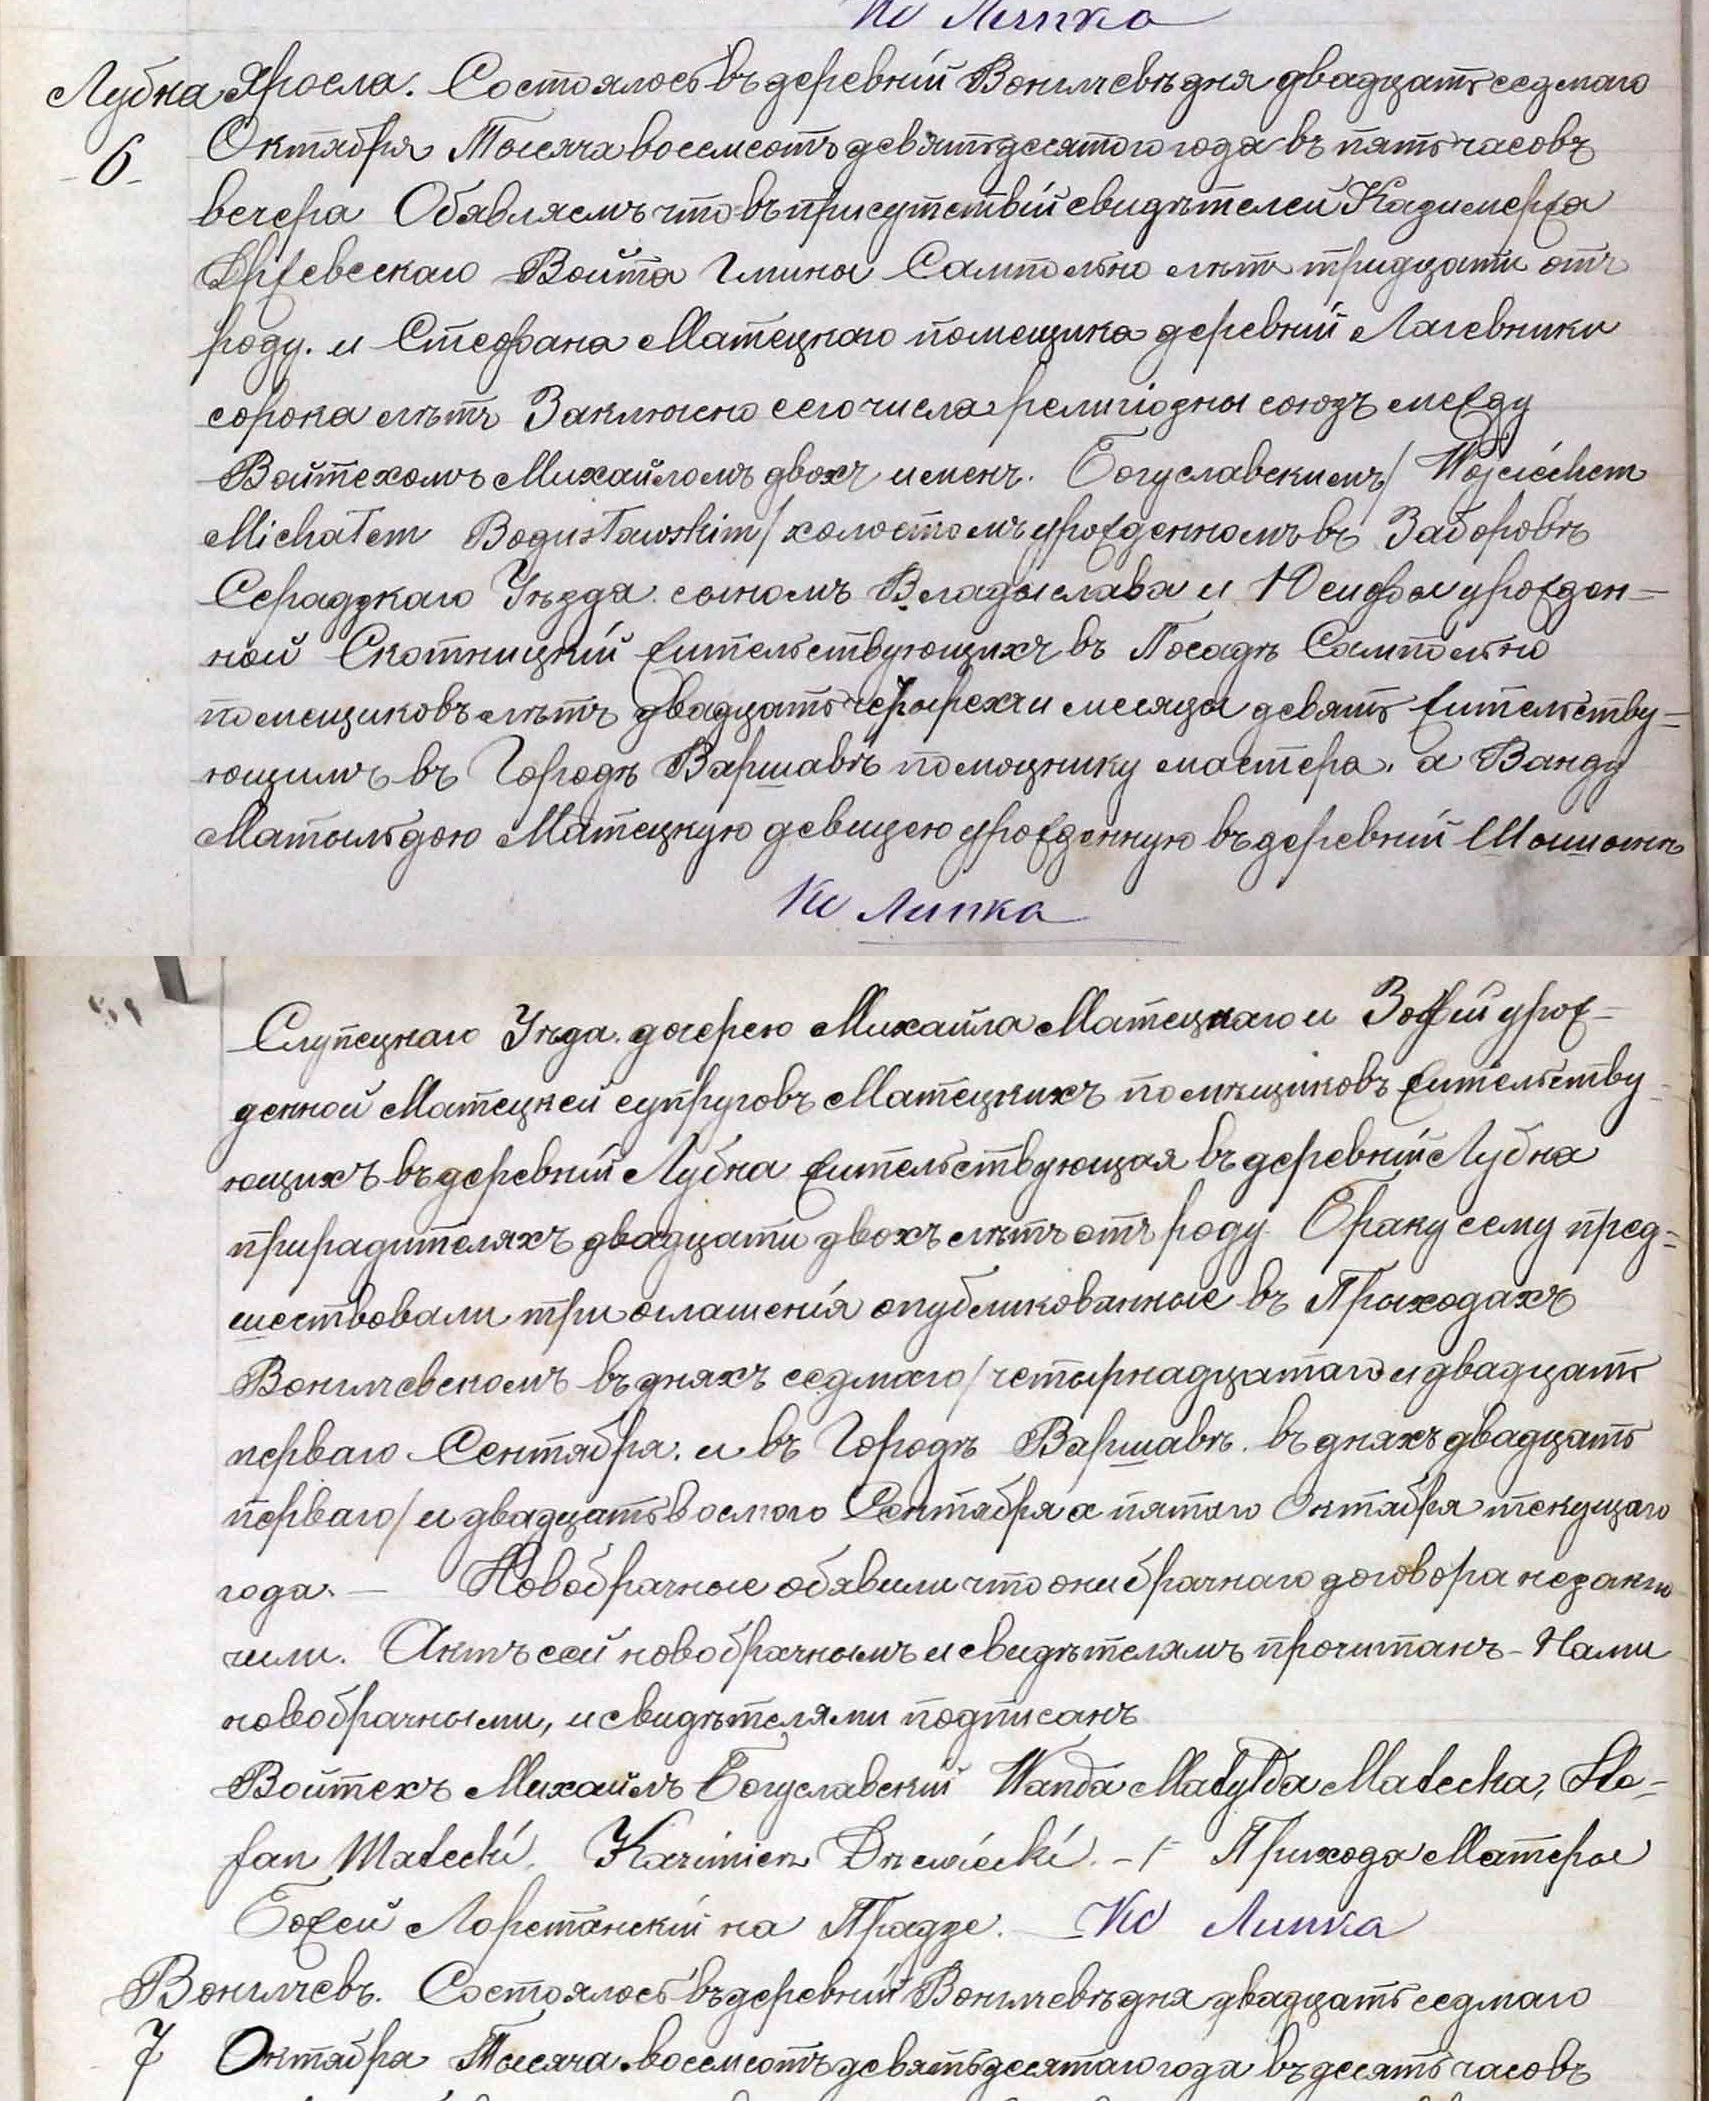 Кс Липка
Лубна Яросла. Состоялось въ деревнѝй Вонглчевѣ дня двадцать седмаго
6 Октября Тысяча восемсотъ девятьдесятого года въ пять часовъ
вечера Обявляемъ что въ присутствій свидѣтелей Казимержа
Држевескаго Войта Гмины Самполно лѣтъ тридцати отъ
роду. и Стефана Матецкаго помещика деревній Лагевники
сорока лѣтъ Заключено сего числа религіозны союзъ между
Войтехомъ Михайломъ двохъ именъ. Богуславскимъ / Wojciéchem
Michałem Bogusławskim / холостомъ урожденномъ въ Заборовѣ
Серадзкаго Уѣзда сыномъ Владыслава и Юсифы урожден=
ной Скотницкій жительствующихъ въ Посадѣ Самполно
помещиковъ лѣтъ двадцать четырехъ и месяцы девять жительству=
ющимъ въ Городѣ Варшавѣ помощнику мастера. а Ванду
Матыльдою Матецкую девицею урожденную въ деревній
Кс Липка
Слупецкаго Уѣда. дочерею Михаила Матецкаго и Зофій урож=
денной Матецкей супруговъ Матецкихъ помѣщиковъ жительству=
ющихъ въ деревній Лубна жительствующая въ деревній Лубна
прирадителяхъ двадцати двохъ лѣтъ отъ роду Браку сему пред=
шествовали три оглашенія опубликованные въ Прыходахъ
Вонглчевскомъ въ дняхъ седмаго / четырнадцатаго и двадцать
перваго Сентября. и въ Городѣ Варшавѣ. въ дняхъ двадцать
перваго / и двадцать восмого Сентября а пятого Октября текущаго
года. — Новобрачные обявили что они брачнаго договора незаклю
чили. Актъ сей новобрачнымъ и свидѣтелямъ прочитанъ - Нами
новобрачными, и свидѣтелями подписанъ
Войтехъ Михаилъ Богуславскій Wanda Matylda Matecka, Ste-
fan Matecki. Kazimierz Drzewiécki. - / - Прихода Матеры
Божей Лоретанскій на Прадзе. Кс Липка
Вонглчевъ. Состоялось въ деревній Вонглчевѣ дня двадцать седмаго
7 Октабра Тысяча восемсотъ девятьдесятаго года въ десять часовъ